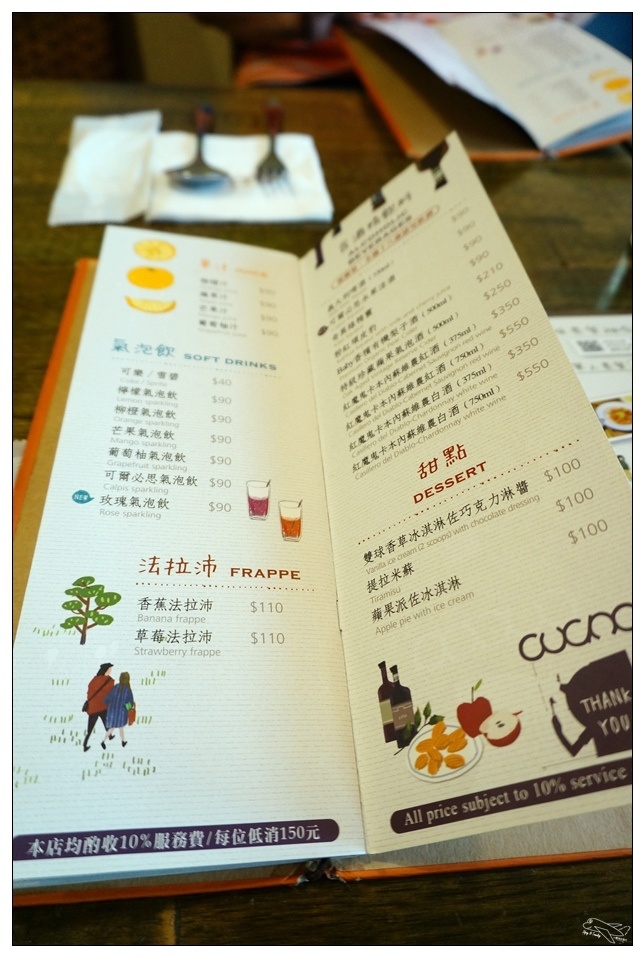 果汁
柳橙汁
$90
蘋果汁
$90
芒果汁
$90
葡萄柚汁
$90
氣泡飲 SOFT DRINKS
可樂 / 雪碧
Coke / Sprite
$40
檸檬氣泡飲
Lemon sparkling
$90
柳橙氣泡飲
Orange sparkling
$90
芒果氣泡飲
Mango sparkling
$90
葡萄柚氣泡飲
Grapefruit sparkling
$90
可爾必思氣泡飲
Calpis sparkling
$90
NEW 玫瑰氣泡飲
Rose sparkling
$90
法拉沛 FRAPPE
香蕉法拉沛 $110
Banana frappe
草莓法拉沛 $110
Strawberry frappe
本店均酌收10%服務費/每位低消150元
ALCOHOLIC
BEVERAGES
$90
$90
$90
$90
$210
$250
$350
紅魔鬼卡本內蘇維農紅酒 (375ml)
$550
紅魔鬼卡本內蘇維農紅酒 (750ml)
Casillero del Diablo-Cabernet Sauvignon red wine
$350
紅魔鬼卡本內蘇維農白酒 (375ml)
Casillero del Diablo-Chardonnay white wine
$550
紅魔鬼卡本內蘇維農白酒 (750ml)
Casillero del Diablo-Chardonnay white wine
甜點
DESSERT
雙球香草冰淇淋佐巧克力淋醬 $100
Vanilla ice cream (2 scoops) with chocolate dressing
提拉米蘇 $100
Tiramisu
蘋果派佐冰淇淋 $100
Apple pie with ice cream
THANK
YOU
All price subject to 10% service